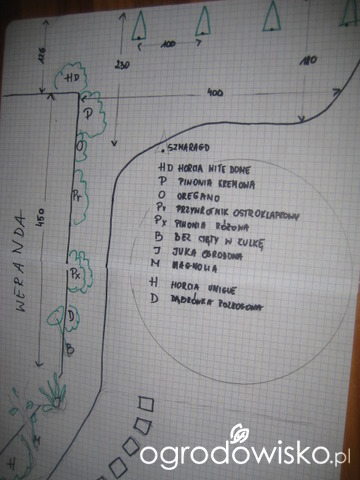 126
230
100
180
400
HD
D
O
Pr
Px
D
B
450
WERANDA
SZMARAGD
HD HORCIA NITE DOME
P PINONIA KREMOWA
O OREGANO
Pr PRZYWROTNIK OSTROKLAPOWY
Px PINONIA RÓŻOWA
B BEZ CIĘTY W KULKĘ
J JUKA OGRODOWA
M MAGNOLIA
H HORCIA UNIGUE
D DĄBRÓWKA ROZŁOGOWA
H
ogrodowisko.pl